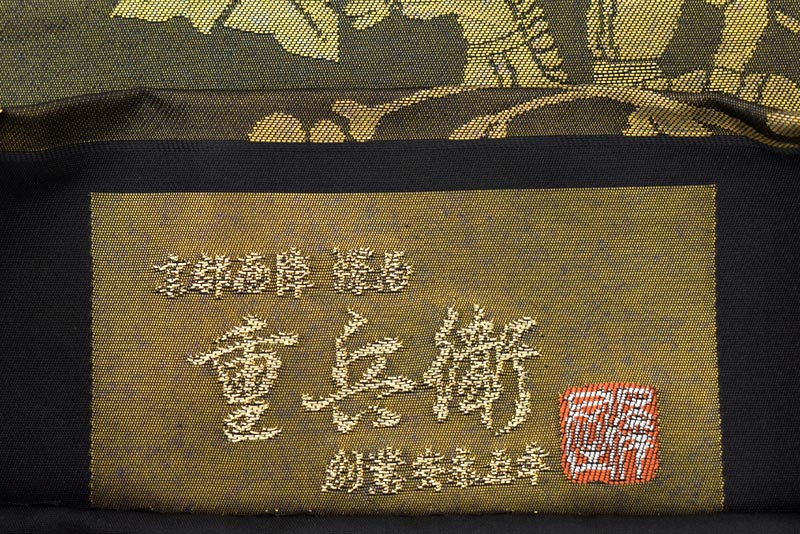 京都西陣
重兵衛
創業安永五年